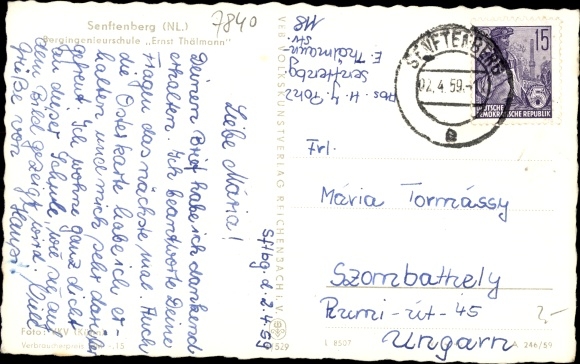 Senftenberg (NL.)
Bergingenieurschule „Ernst Thälmann"
7840
Liebe Mária!
Deinen Brief habe ich dankend
erhalten. Ich beantworte Deine
Fragen das nächste mal. Auch
die Osterkarte habe ich er
halten und mich sehr darüber
gefreut. Ich wohne ganz dicht
an dieser Schule, wie sie auf
dem Bild gezeigt wird. Viele
Grüße von Klaus.
Sftbg. d. 2.4.59
Foto: VKV
Verbraucherpreis
VEB VOLKSKUNSTVERLAG REICHENBACH I. V.
Abs. H. Y. Pohl
Senftenberg
E. Thälmann
118
SENFTENBERG
02.4.59.
e
15
DEUTSCHE
DEMOKRATISCHE REPUBLIK
5
Frl.
Mária Tormássy
Szombathely
Rumi-út-45
Ungarn
2,-
L 8507
A 246/59